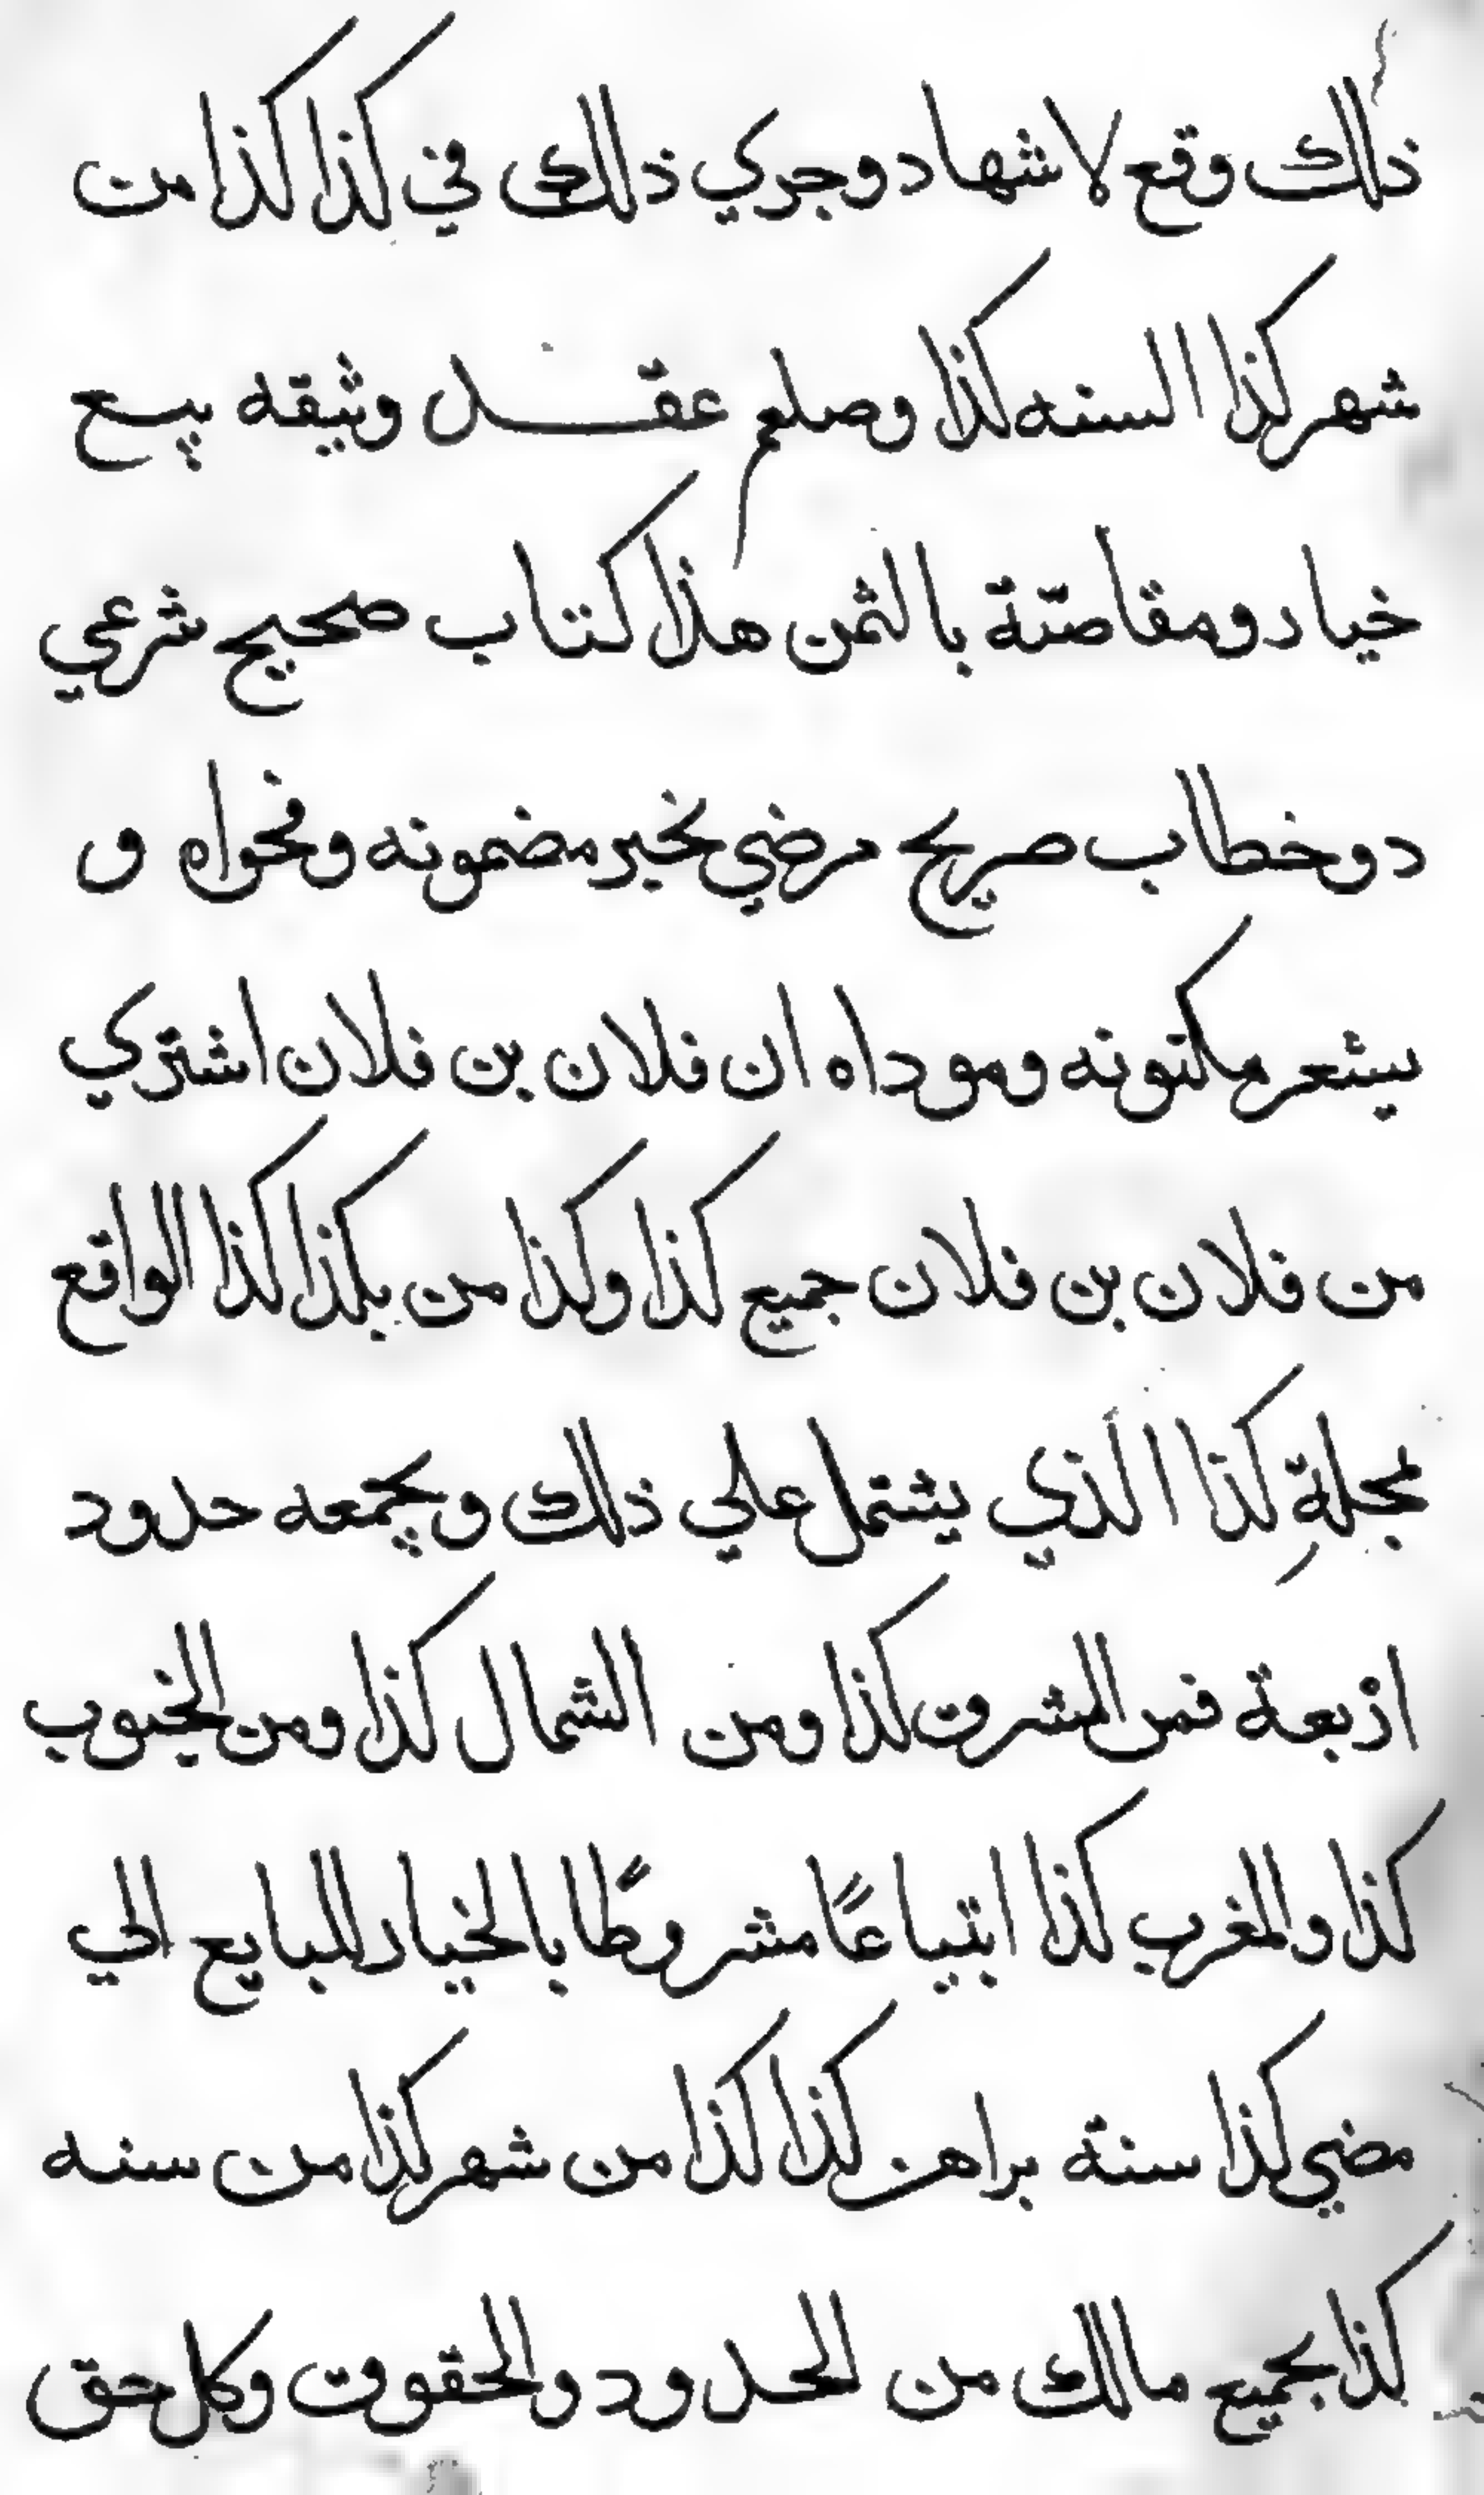 ذلك وقع لاشهاد وجري ذلك في كذا كذا من
شهر كذا السنه كذا وصلعم عقد وثيقه بيع
خيار ومقاصّة بالثمن هذا كتاب صحيح شرعي
دو خطاب صريح مرضي يخبر مضمونه وفحواه و
يشعر مكنونه وموداه ان فلان بن فلان اشتري
من فلان بن فلان جميع كذا وكذا من بكذا كذا الواقع
بمحلة كذا الذي يشتمل علي ذلك ويجمعه حدود
اربعة فمن المشرق كذا ومن الشمال كذا ومن الجنوب
كذا والمغرب كذا ابتياعًا مشروطًا بالخيار للبايع الي
مضي كذا سنة براهن كذا كذا من شهر كذا من سنه
كذا بجميع مالك من الحدود والحقوق وكل حق